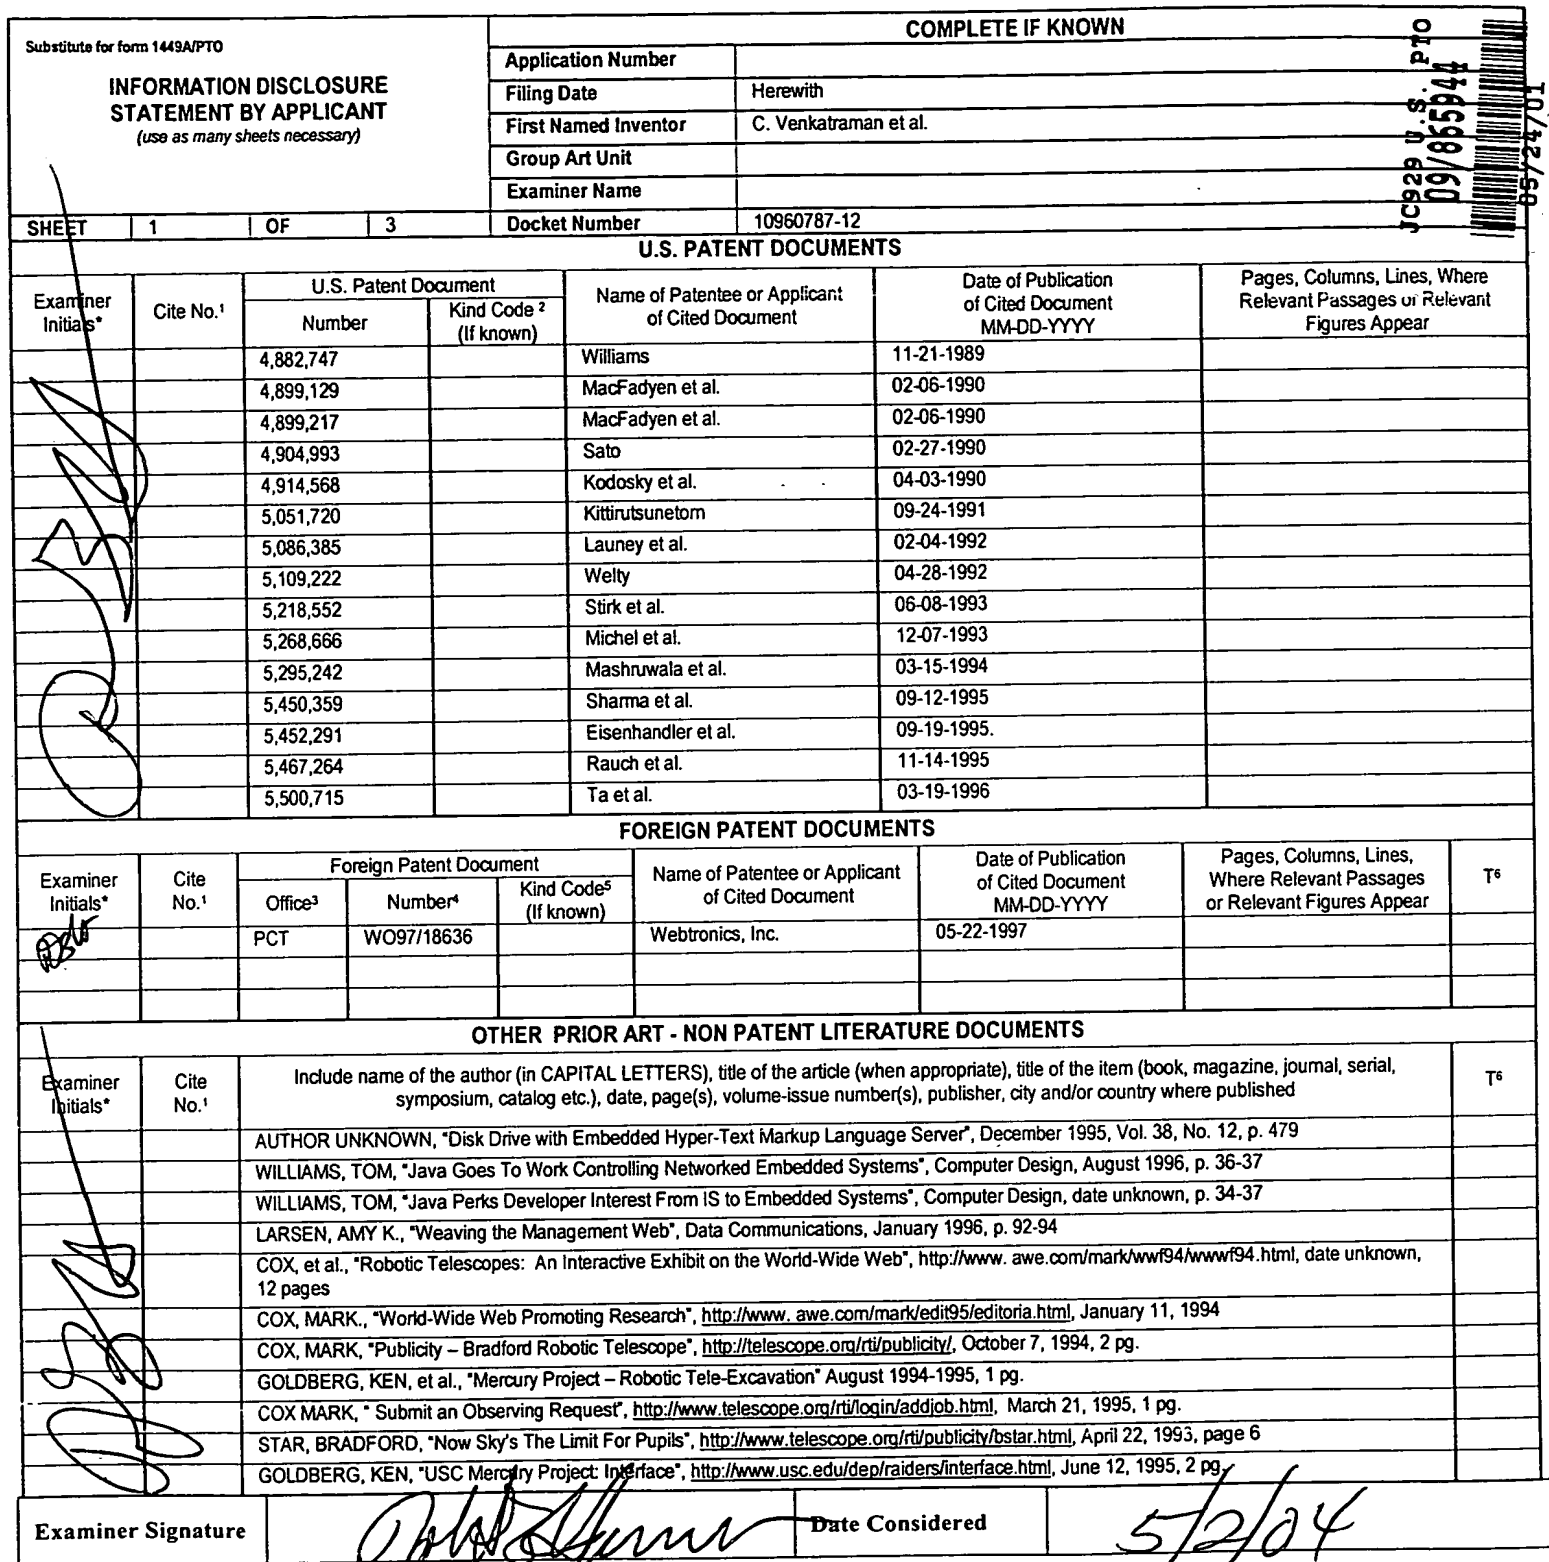 Substitute for form 1449A/PTO
INFORMATION DISCLOSURE
STATEMENT BY APPLICANT
(use as many sheets necessary)
SHEET 1 OF 3
COMPLETE IF KNOWN
Application Number
Filing Date Herewith
First Named Inventor C. Venkatraman et al.
Group Art Unit
Examiner Name
Docket Number 10960787-12
JC929 U.S. PTO
09/865944
05/24/01
U.S. PATENT DOCUMENTS
Examiner Initials* Cite No.¹ U.S. Patent Document Number Kind Code ² (If known) Name of Patentee or Applicant of Cited Document Date of Publication of Cited Document MM-DD-YYYY Pages, Columns, Lines, Where Relevant Passages or Relevant Figures Appear
4,882,747 Williams 11-21-1989
4,899,129 MacFadyen et al. 02-06-1990
4,899,217 MacFadyen et al. 02-06-1990
4,904,993 Sato 02-27-1990
4,914,568 Kodosky et al. 04-03-1990
5,051,720 Kittirutsunetorn 09-24-1991
5,086,385 Launey et al. 02-04-1992
5,109,222 Welty 04-28-1992
5,218,552 Stirk et al. 06-08-1993
5,268,666 Michel et al. 12-07-1993
5,295,242 Mashruwala et al. 03-15-1994
5,450,359 Sharma et al. 09-12-1995
5,452,291 Eisenhandler et al. 09-19-1995.
5,467,264 Rauch et al. 11-14-1995
5,500,715 Ta et al. 03-19-1996
FOREIGN PATENT DOCUMENTS
Examiner Initials* Cite No.¹ Foreign Patent Document Office³ Number⁴ Kind Code⁵ (If known) Name of Patentee or Applicant of Cited Document Date of Publication of Cited Document MM-DD-YYYY Pages, Columns, Lines, Where Relevant Passages or Relevant Figures Appear T⁶
PCT WO97/18636 Webtronics, Inc. 05-22-1997
OTHER PRIOR ART - NON PATENT LITERATURE DOCUMENTS
Examiner Initials* Cite No.¹ Include name of the author (in CAPITAL LETTERS), title of the article (when appropriate), title of the item (book, magazine, journal, serial, symposium, catalog etc.), date, page(s), volume-issue number(s), publisher, city and/or country where published T⁶
AUTHOR UNKNOWN, "Disk Drive with Embedded Hyper-Text Markup Language Server", December 1995, Vol. 38, No. 12, p. 479
WILLIAMS, TOM, "Java Goes To Work Controlling Networked Embedded Systems", Computer Design, August 1996, p. 36-37
WILLIAMS, TOM, "Java Perks Developer Interest From IS to Embedded Systems", Computer Design, date unknown, p. 34-37
LARSEN, AMY K., "Weaving the Management Web", Data Communications, January 1996, p. 92-94
COX, et al., "Robotic Telescopes: An Interactive Exhibit on the World-Wide Web", http://www. awe.com/mark/wwf94/wwwf94.html, date unknown,
12 pages
COX, MARK., "World-Wide Web Promoting Research", http://www. awe.com/mark/edit95/editoria.html, January 11, 1994
COX, MARK, "Publicity – Bradford Robotic Telescope", http://telescope.org/rti/publicity/, October 7, 1994, 2 pg.
GOLDBERG, KEN, et al., "Mercury Project – Robotic Tele-Excavation" August 1994-1995, 1 pg.
COX MARK, " Submit an Observing Request", http://www.telescope.org/rti/login/addjob.html, March 21, 1995, 1 pg.
STAR, BRADFORD, "Now Sky's The Limit For Pupils", http://www.telescope.org/rti/publicity/bstar.html, April 22, 1993, page 6
GOLDBERG, KEN, "USC Mercury Project: Interface", http://www.usc.edu/dep/raiders/interface.html, June 12, 1995, 2 pg.
Examiner Signature Date Considered 5/2/04